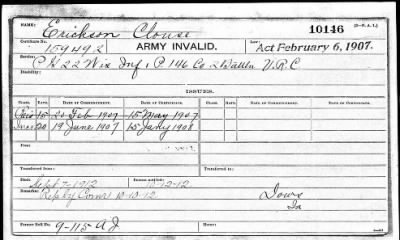 NAME: Erickson Clouse 10146 [3-F. A. 1.]
Certificate No. 159492 ARMY INVALID. Law: Act February 6, 1907.
Service: P. K 22 Wis Inf; P. 146 Co 2 Battln V.R.C
ISSUES. ISSUES.
CLASS. RATE. DATE OF COMMENCEMENT. DATE OF CERTIFICATE. CLASS. RATE. DATE OF COMMENCEMENT. DATE OF CERTIFICATE.
15 20 Feb 1907 15 May 1907
Inc 20 19 June 1907 15 Jany 1908
From:
Transferred from: Transferred to:
Died: Sept 7-1912 10-12-12
Remarks: Rep by Comr 10-10-12
Iowa
Ia
Former Roll No. 9-115 A J Home: